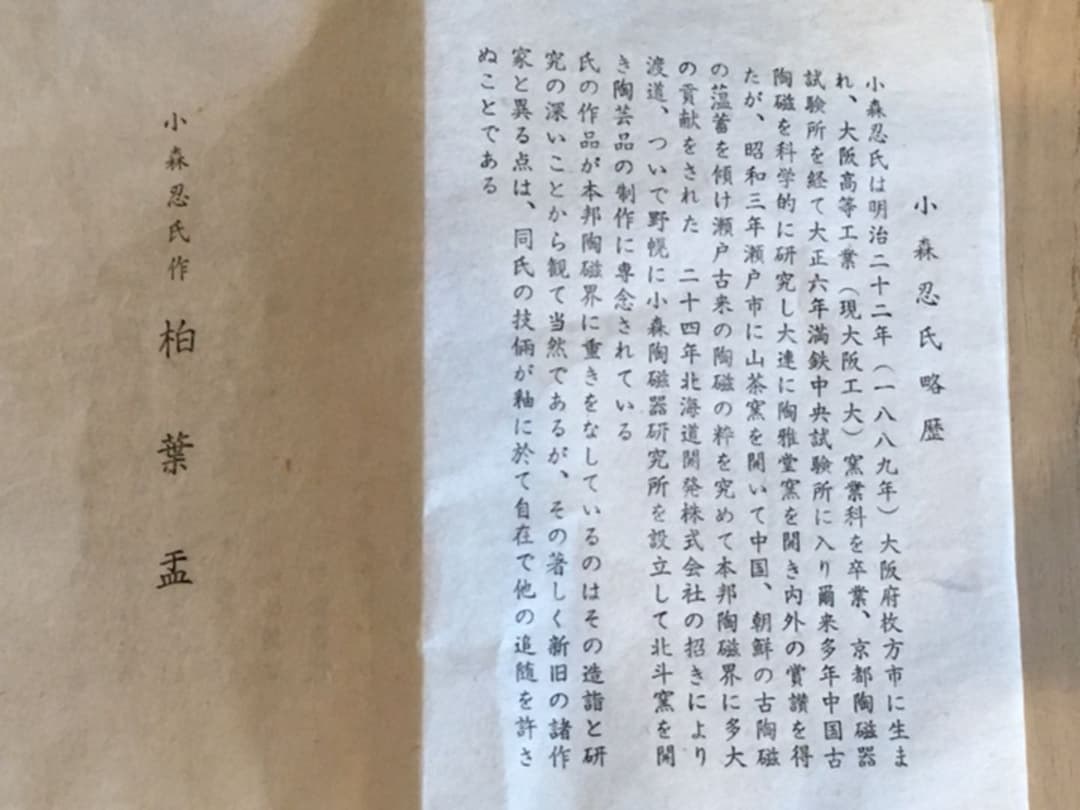 小森忍氏略歴
小森忍氏は明治二十二年(一八八九年)大阪府枚方市に生ま
れ、大阪高等工業(現大阪工大)窯業科を卒業、京都陶磁器
試験所を経て大正六年満鉄中央試験所に入り爾来多年中国古
陶磁を科学的に研究し大連に陶雅堂窯を開き内外の賞讃を得
たが、昭和三年瀬戸市に山茶窯を開いて中国、朝鮮の古陶磁
の薀蓄を傾け瀬戸古来の陶磁の粋を究めて本邦陶磁界に多大
の貢献をされた 二十四年北海道開発株式会社の招きにより
渡道、ついで野幌に小森陶磁器研究所を設立して北斗窯を開
き陶芸品の制作に専念されている
氏の作品が本邦陶磁界に重きをなしているのはその造詣と研
究の深いことから観て当然であるが、その著しく新旧の諸作
家と異る点は、同氏の技倆が釉に於て自在で他の追随を許さ
ぬことである
小森忍氏作 柏葉盂